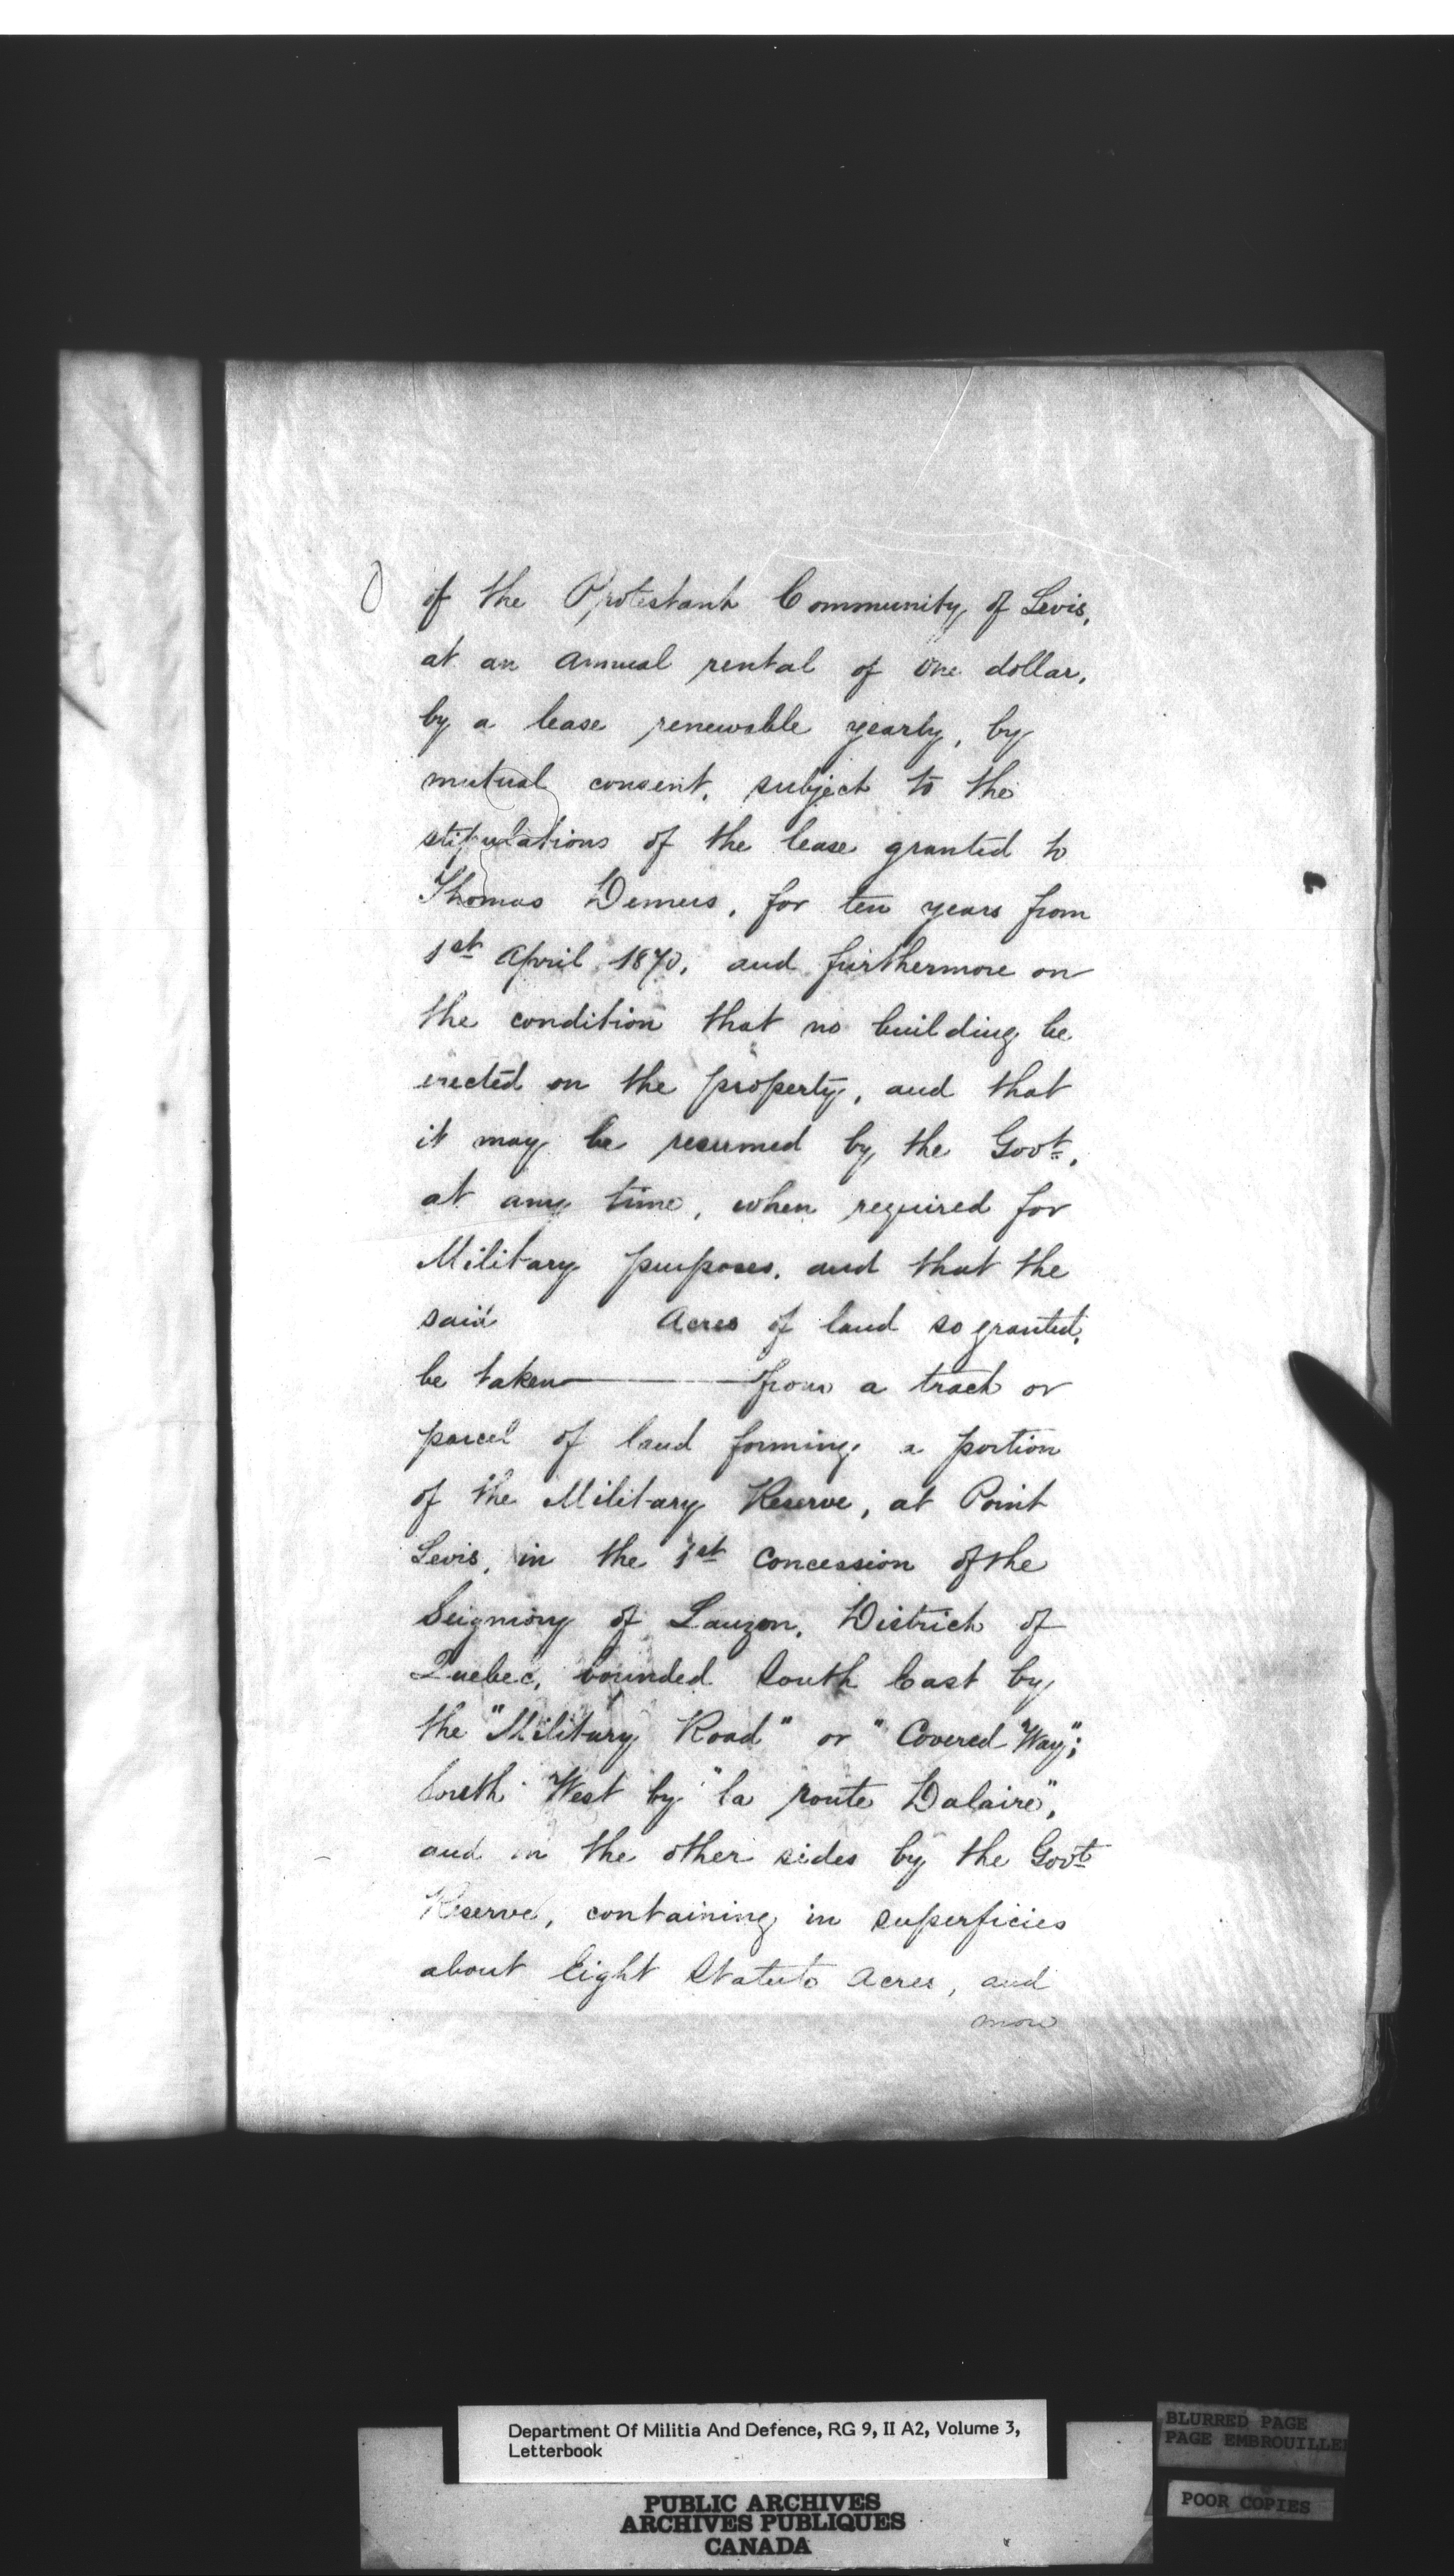 of the Protestant Community of Levis,
at an annual rental of One dollar,
by a lease renewable yearly, by
mutual consent, subject to the
stipulations of the lease granted to
Thomas Demers, for ten years from
1st April 1870, and furthermore on
the condition that no building be
erected on the property, and that
it may be resumed by the Govt.,
at any time, when required for
Military purposes, and that the
said Acres of land so granted,
be taken — from a tract or
parcel of land forming a portion
of the Military Reserve, at Point
Levis, in the 1st Concession of the
Seigniory of Lauzon, District of
Quebec, bounded South East by
the "Military Road" or "Covered Way";
South West by "la route Dalaire",
and on the other sides by the Govt
Reserve, containing in superficies
about Eight Statute Acres, and
Department Of Militia And Defence, RG 9, II A2, Volume 3,
Letterbook
PUBLIC ARCHIVES
ARCHIVES PUBLIQUES
CANADA
BLURRED PAGE
PAGE EMBROUILLEE
POOR COPIES